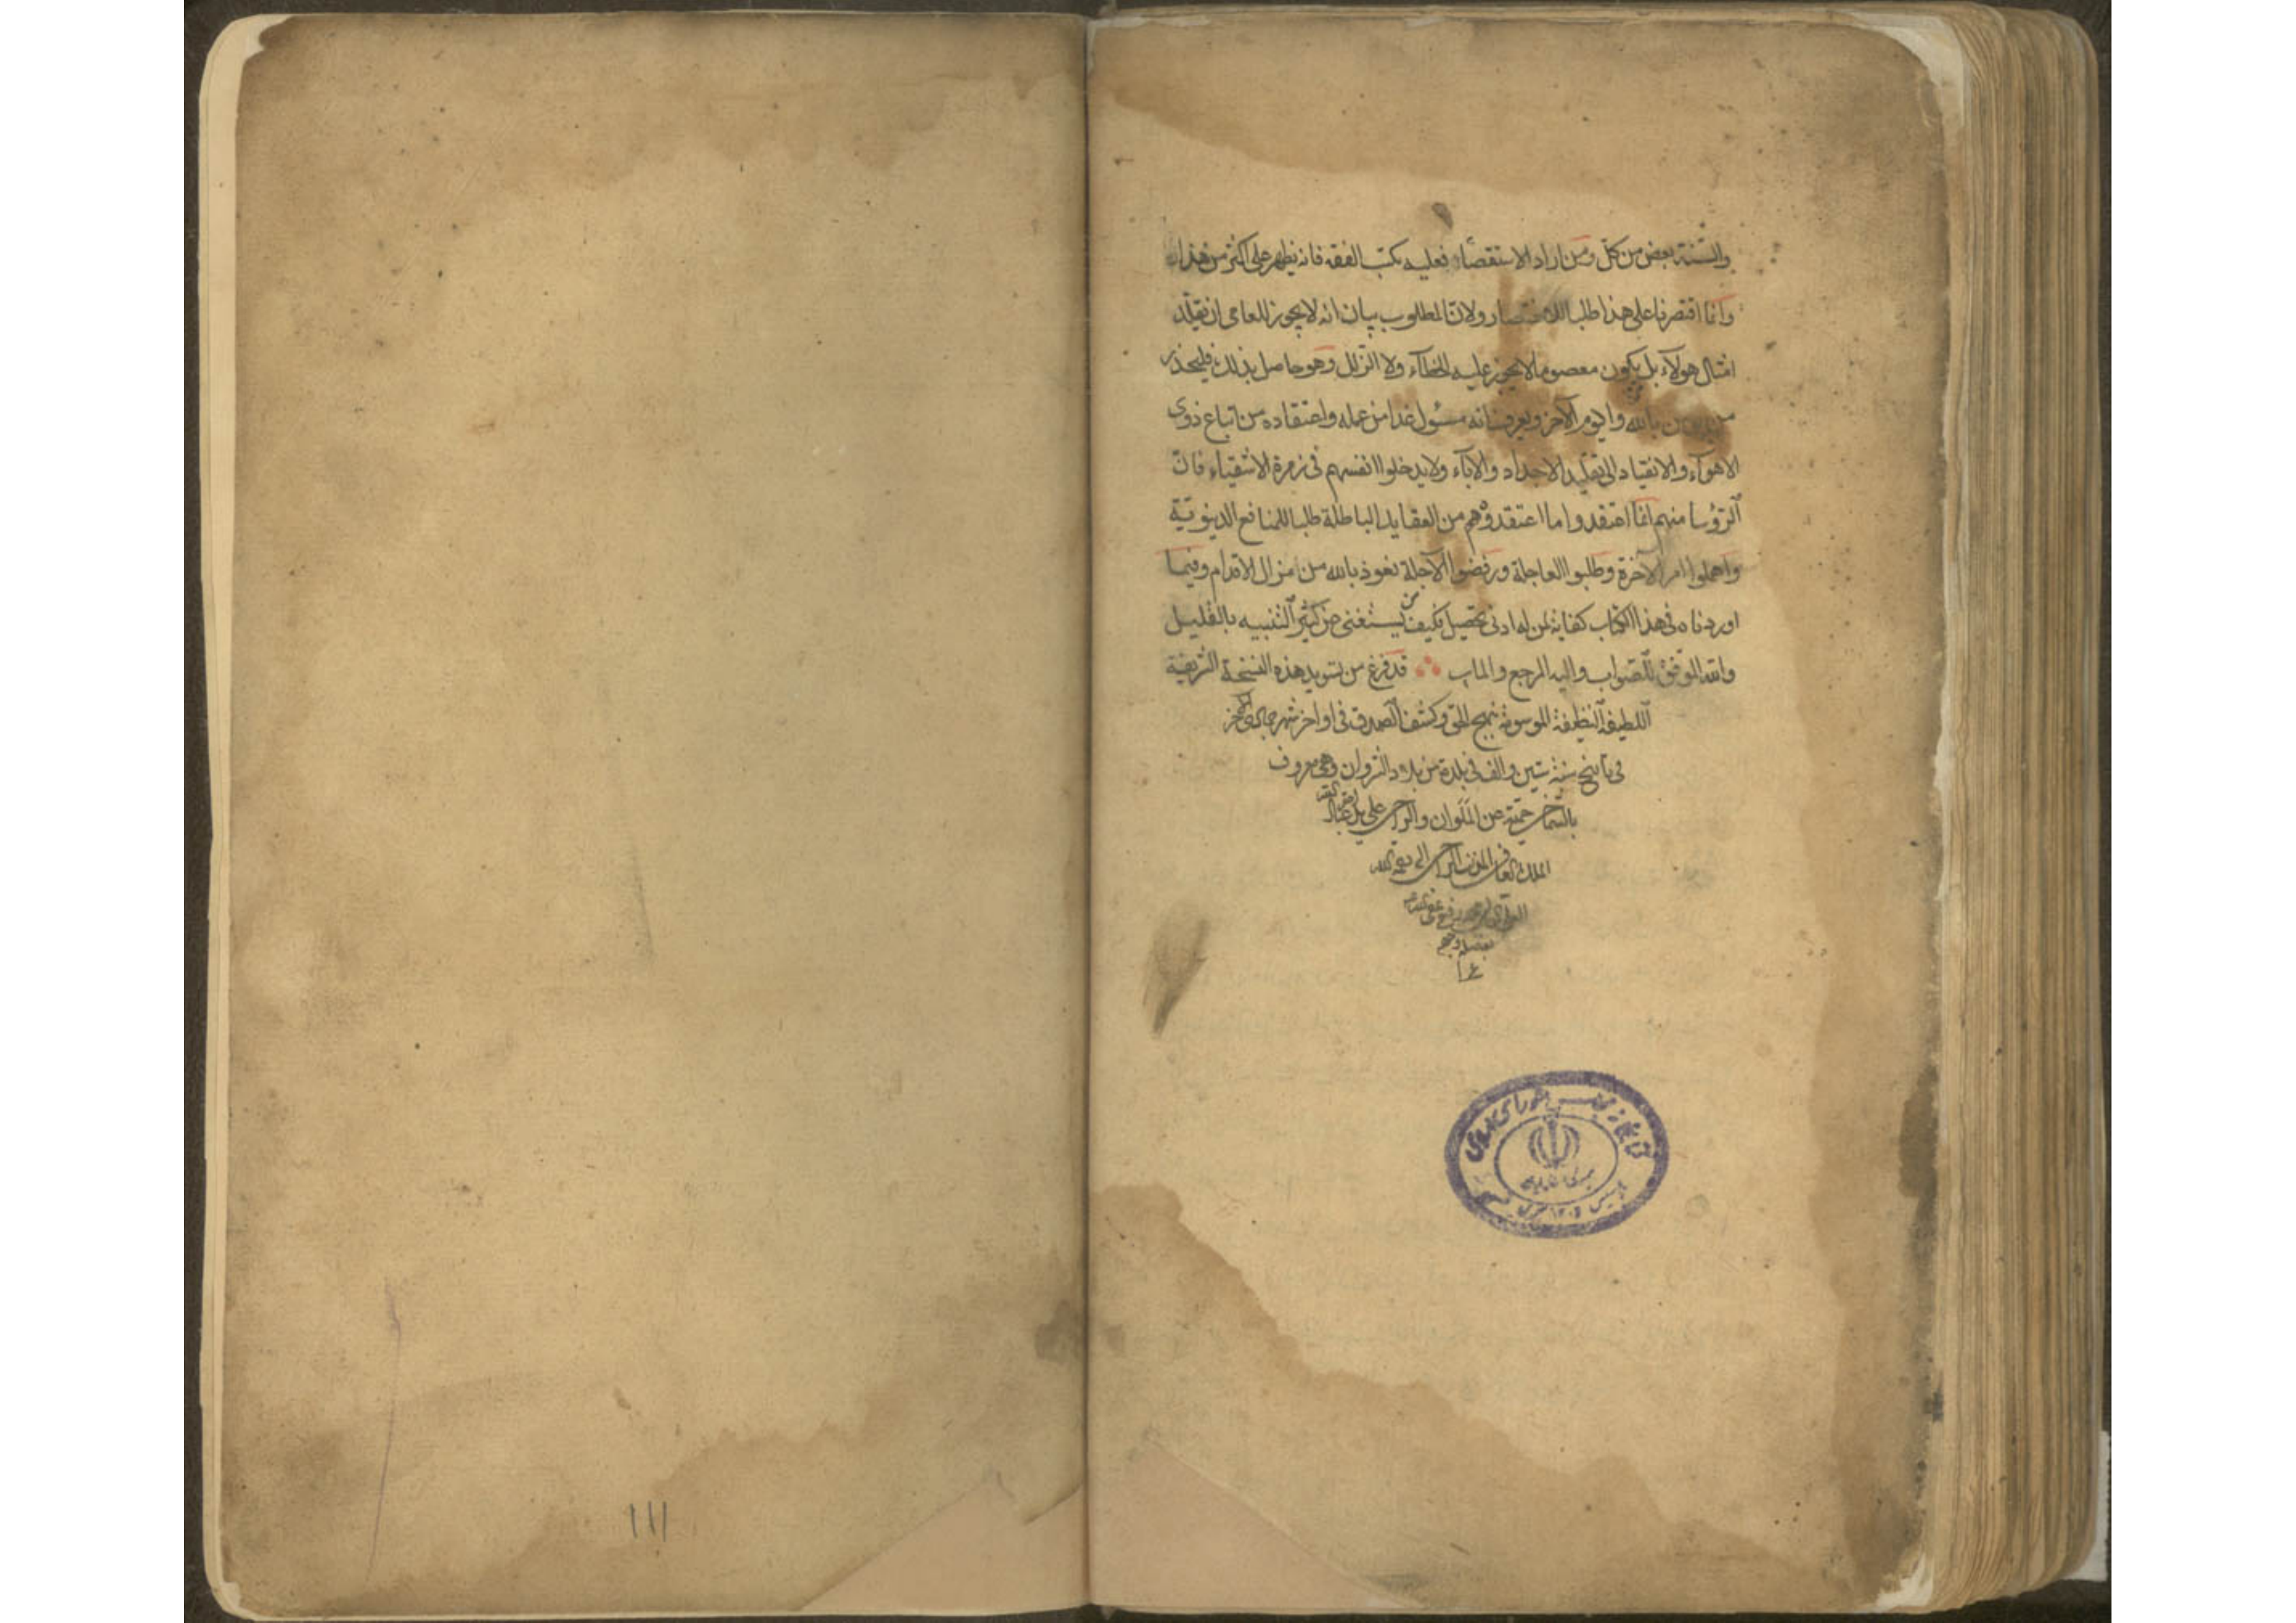 والسنة بعض من كل ومن اراد الاستقصاء فعليه بكتب الفقه فانه يظهر على اكثر من هذا
وانما اقتصرنا على هذا طلبا للاختصار ولان المطلوب بيان انه لا يجوز للعامى ان يقلد
امثال هولاء بل يكون معصوما لا يجوز عليه الخطاء ولا الزلل وهو حاصل بذلك فليحذر
بالله واليوم الآخر ويعرف انه مسئول غدا من عمله واعتقاده من اتباع ذوى
الاهواء والانقياد الى تقليد الاجداد والاباء ولا يدخلوا انفسهم فى زمرة الاشقياء فان
الرؤسا منهم انما اعتقدوا ما اعتقدوه من العقايد الباطلة طلبا للمنافع الدينوية
واهملوا امر الآخرة وطلبوا العاجلة ورفضوا الآجلة نعوذ بالله من مزال الاقدام وفيما
اوردناه فى هذا الكتاب كفاية لمن له ادنى تحصيل فكيف من يستغنى عن كثير التنبيه بالقليل
والله الموفق للصواب واليه المرجع والماب قد فرغ من تسويد هذه النسخة الشريفة
اللطيفة النظيفة الموسومة بنهج الحق وكشف الصدق فى اواخر شهر جمادى الآخر
فى تاريخ سنة ستين والف فى بلدة من بلاد الشروان وهى معروف
على يد
الملك
الى
١١١